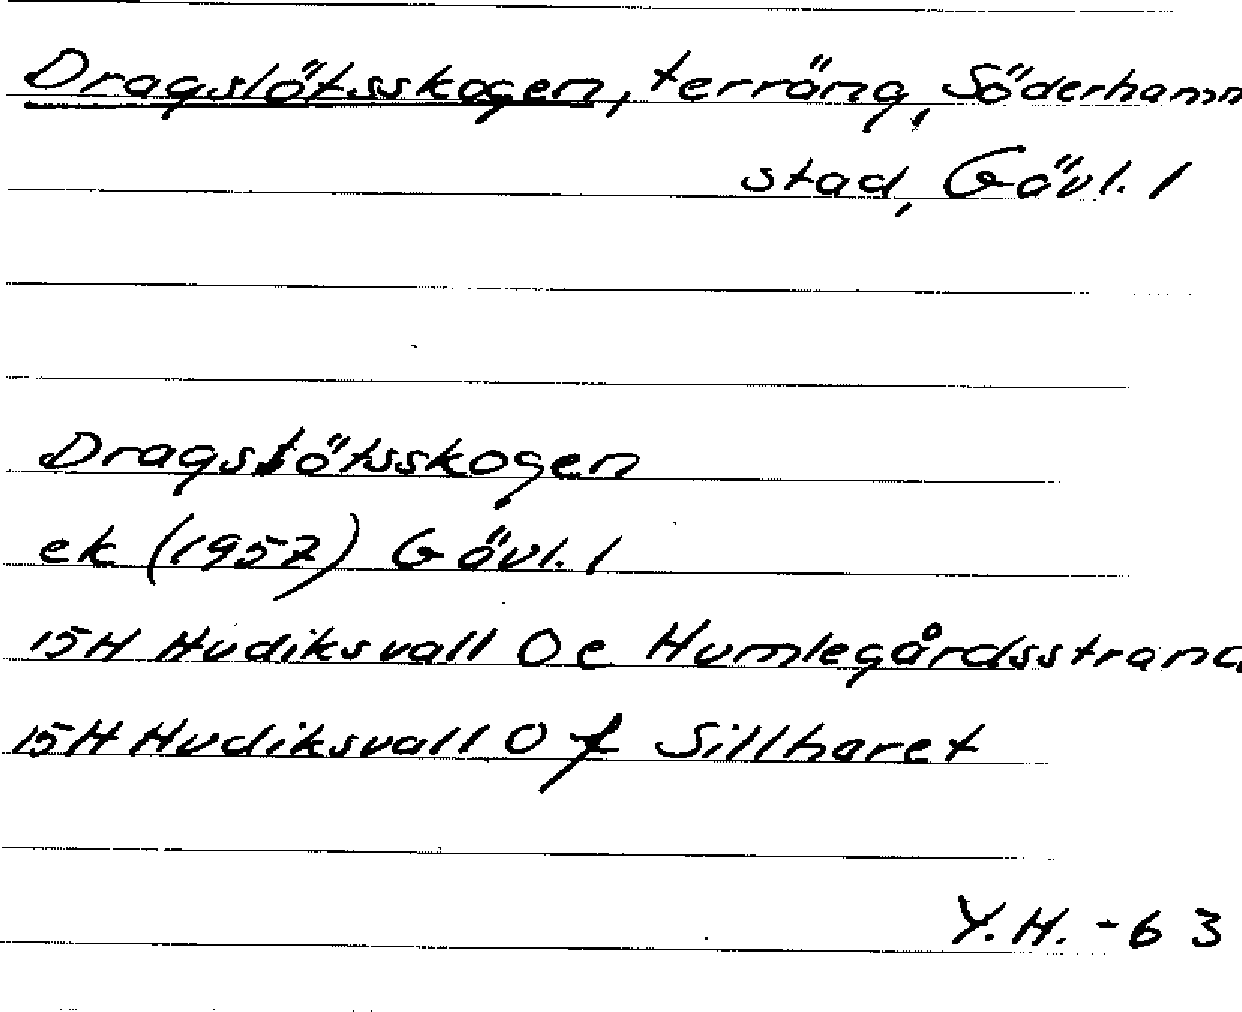 Dragslötsskogen, terräng, Söderhamn
stad, Gävl. l
Dragslötsskogen
ek (1957) Gävl. l
15H Hudiksvall 0e Humlegårdsstrand
15H Hudiksvall 0f Sillharet
Y.H. -63